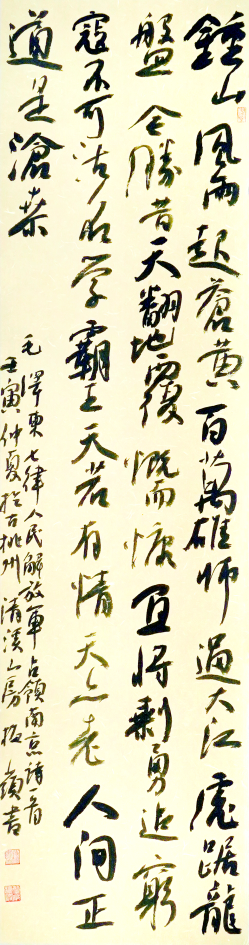 鍾山風雨起蒼黄百萬雄師過大江虎踞龍
盤今勝昔天翻地覆慨而慷宜將剩勇追窮
寇不可沽名学霸王天若有情天亦老人间正
道是滄桒
毛澤東七律人民解放軍占領南京詩一首
壬寅仲夏於百桃州清漢山房振書